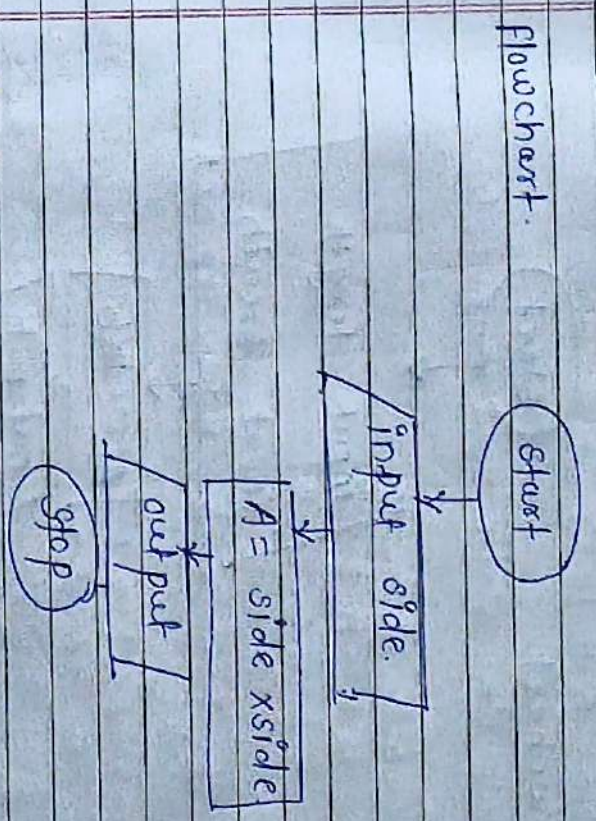 flowchart.
start
input side.
A = side x side
output
stop